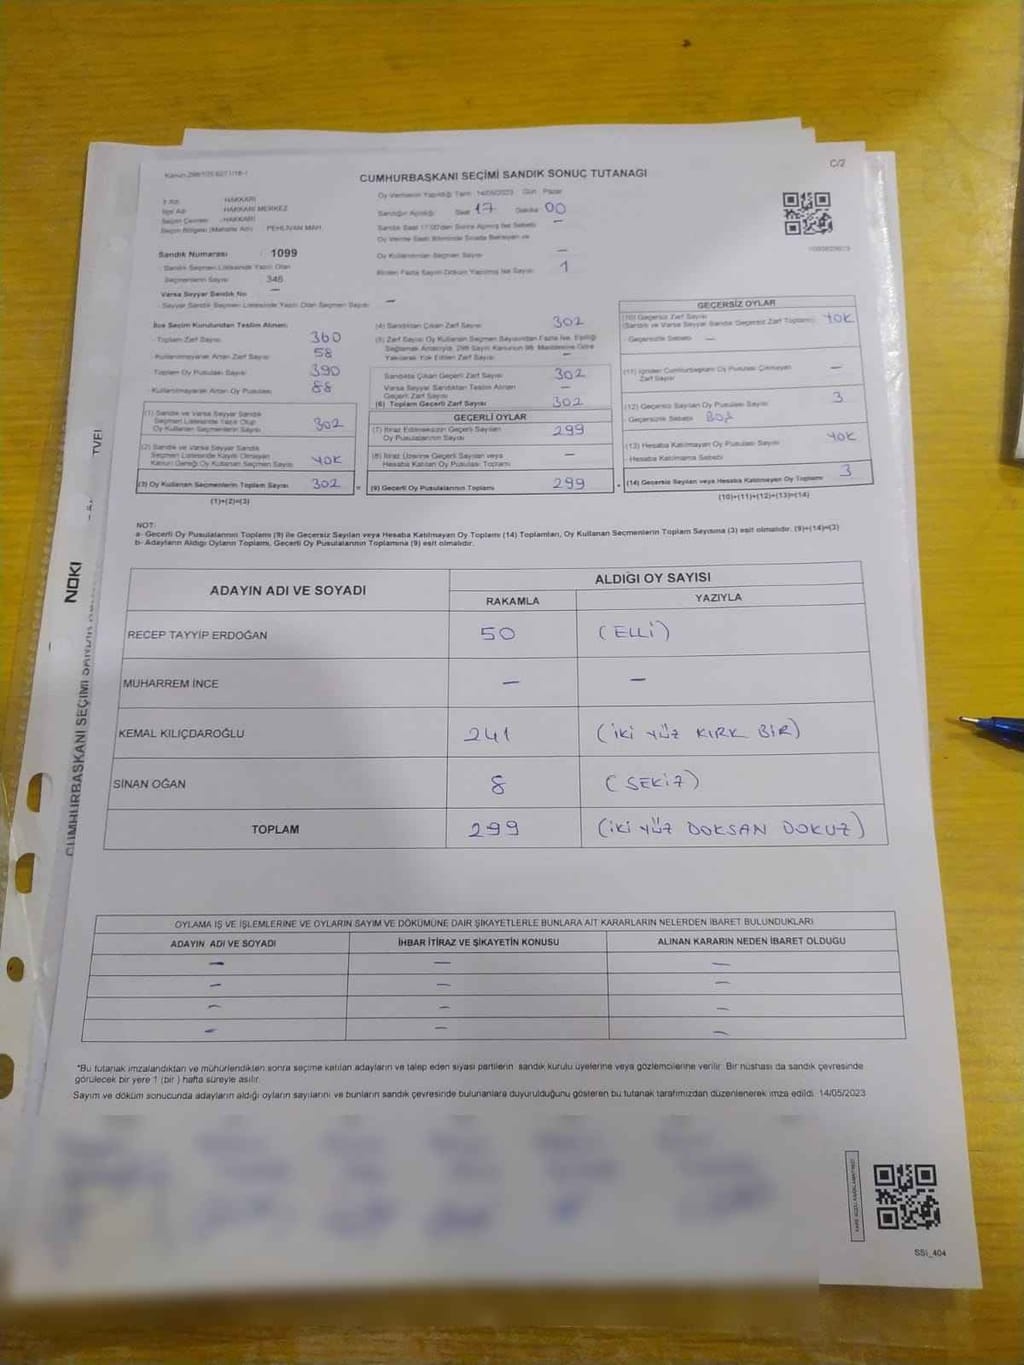 C/2
CUMHURBAŞKANI SEÇİMİ SANDIK SONUÇ TUTANAĞI
Oy Vermenin Yapıldığı Tarih 14/05/2023 Gün Pazar
İl Adı HAKKARİ
İlçe Adı HAKKARİ MERKEZ
Seçim Çevresi HAKKARİ
Seçim Bölgesi (Mahalle Adı) PEHLİVAN MAH.
Sandığın Açıldığı Saat 17 Dakika 00
Sandık Saat 17:00'den Sonra Açılmış İse Sebebi —
Oy Verme Saati Bitiminde Sırada Bekleyen ve
Oy Kullandırılan Seçmen Sayısı —
Birden Fazla Sayım Döküm Yapılmış İse Sayısı 1
Sandık Numarası : 1099
Sandık Seçmen Listesinde Yazılı Olan
Seçmenlerin Sayısı 346
Varsa Seyyar Sandık No —
Seyyar Sandık Seçmen Listesinde Yazılı Olan Seçmen Sayısı —
İlçe Seçim Kurulundan Teslim Alınan:
Toplam Zarf Sayısı 360
Kullanılmayarak Artan Zarf Sayısı 58
Toplam Oy Pusulası Sayısı 390
Kullanılmayarak Artan Oy Pusulası 88
(1) Sandık ve Varsa Seyyar Sandık
Seçmen Listesinde Yazılı Olup
Oy Kullanan Seçmenlerin Sayısı 302
(2) Sandık ve Varsa Seyyar Sandık
Seçmen Listesinde Kayıtlı Olmayan
Kanun Gereği Oy Kullanan Seçmen Sayısı YOK
(3) Oy Kullanan Seçmenlerin Toplam Sayısı 302
(1)+(2)=(3)
(4) Sandıktan Çıkan Zarf Sayısı 302
(5) Zarf Sayısı Oy Kullanan Seçmen Sayısından Fazla İse, Eşitliği
Sağlamak Amacıyla, 298 Sayılı Kanunun 98. Maddesine Göre
Yakılarak Yok Edilen Zarf Sayısı —
Sandıkta Çıkan Geçerli Zarf Sayısı 302
Varsa Seyyar Sandıktan Teslim Alınan
Geçerli Zarf Sayısı —
(6) Toplam Geçerli Zarf Sayısı 302
GEÇERLİ OYLAR
(7) İtiraz Edilmeksizin Geçerli Sayılan
Oy Pusulalarının Sayısı 299
(8) İtiraz Üzerine Geçerli Sayılan veya
Hesaba Katılan Oy Pusulası Toplamı —
= (9) Geçerli Oy Pusulalarının Toplamı 299
GEÇERSİZ OYLAR
(10) Geçersiz Zarf Sayısı
(Sandık ve Varsa Seyyar Sandık Geçersiz Zarf Toplamı) YOK
- Geçersizlik Sebebi —
(11) İçinden Cumhurbaşkanı Oy Pusulası Çıkmayan
Zarf Sayısı —
(12) Geçersiz Sayılan Oy Pusulası Sayısı 3
- Geçersizlik Sebebi BOŞ
(13) Hesaba Katılmayan Oy Pusulası Sayısı YOK
- Hesaba Katılmama Sebebi
+ (14) Geçersiz Sayılan veya Hesaba Katılmayan Oy Toplamı 3
(10)+(11)+(12)+(13)=(14)
NOT:
a- Geçerli Oy Pusulalarının Toplamı (9) ile Geçersiz Sayılan veya Hesaba Katılmayan Oy Toplamı (14) Toplamları, Oy Kullanan Seçmenlerin Toplam Sayısına (3) eşit olmalıdır. (9)+(14)=(3)
b- Adayların Aldığı Oyların Toplamı, Geçerli Oy Pusulalarının Toplamına (9) eşit olmalıdır.
ADAYIN ADI VE SOYADI
ALDIĞI OY SAYISI
RAKAMLA YAZIYLA
RECEP TAYYİP ERDOĞAN 50 (ELLİ)
MUHARREM İNCE — —
KEMAL KILIÇDAROĞLU 241 (İKİ YÜZ KIRK BİR)
SİNAN OĞAN 8 (SEKİZ)
TOPLAM 299 (İKİ YÜZ DOKSAN DOKUZ)
OYLAMA İŞ VE İŞLEMLERİNE VE OYLARIN SAYIM VE DÖKÜMÜNE DAİR ŞİKAYETLERLE BUNLARA AİT KARARLARIN NELERDEN İBARET BULUNDUKLARI
ADAYIN ADI VE SOYADI İHBAR İTİRAZ VE ŞİKAYETİN KONUSU ALINAN KARARIN NEDEN İBARET OLDUĞU
— — —
— — —
— — —
— — —
*Bu tutanak imzalandıktan ve mühürlendikten sonra seçime katılan adayların ve talep eden siyasi partilerin sandık kurulu üyelerine veya gözlemcilerine verilir. Bir nüshası da sandık çevresinde
görülecek bir yere 1 (bir) hafta süreyle asılır.
Sayım ve döküm sonucunda adayların aldığı oyların sayılarını ve bunların sandık çevresinde bulunanlara duyurulduğunu gösteren bu tutanak tarafımızdan düzenlenerek imza edildi. 14/05/2023
SSİ_404